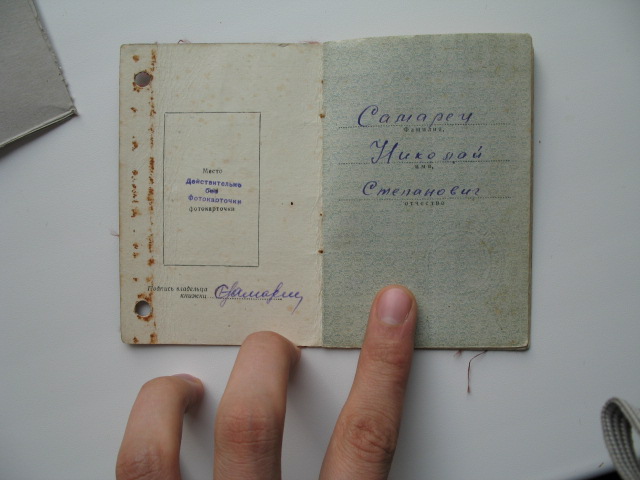 Место
Действительно
без
Фотокарточки
фотокарточки
Подпись владельца
книжки Самарец
Самарец
Фамилия,
Николай
имя,
Степанович
отчество